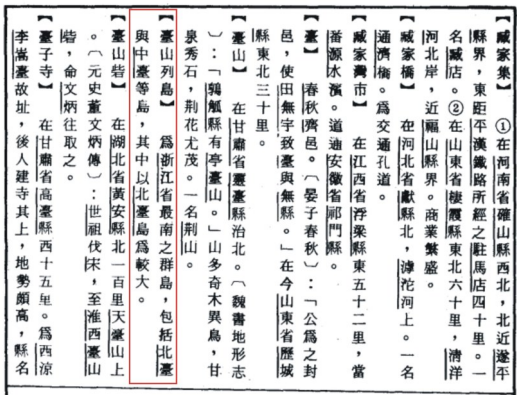 【臧家集】 ①在河南省確山縣西北,北近遂平
縣界,東距平漢鐵路所經之駐馬店四十里。一
名臧店。②在山東省棲霞縣東北六十里,清洋
河北岸,近福山縣界。商業繁盛。
【臧家橋】 在河北省獻縣北,滹沱河上。一名
通濟橋。爲交通孔道。
【臧家灣市】 在江西省浮梁縣東五十二里,當
番源水濱。道通安徽省祁門縣。
【臺】 春秋齊邑。〔晏子春秋〕:「公爲之封
邑,使田無宇致臺與無鹽。」在今山東省歷城
縣東北三十里。
【臺山】 在甘肅省靈臺縣治北。〔魏書地形志
〕:「鶉觚縣有亭臺山。」山多奇木異鳥,甘
泉秀石,荆花尤茂。一名荆山。
【臺山列島】 爲浙江省最南之群島,包括北臺
與中臺等島,其中以北臺島爲較大。
【臺山砦】 在湖北省黃安縣北一百里天臺山上
。〔元史董文炳傳〕:世祖伐宋,至淮西臺山
砦,命文炳往取之。
【臺子寺】 在甘肅省高臺縣西十五里。爲西涼
李嵩臺故址,後人建寺其上,地勢頗高,縣名